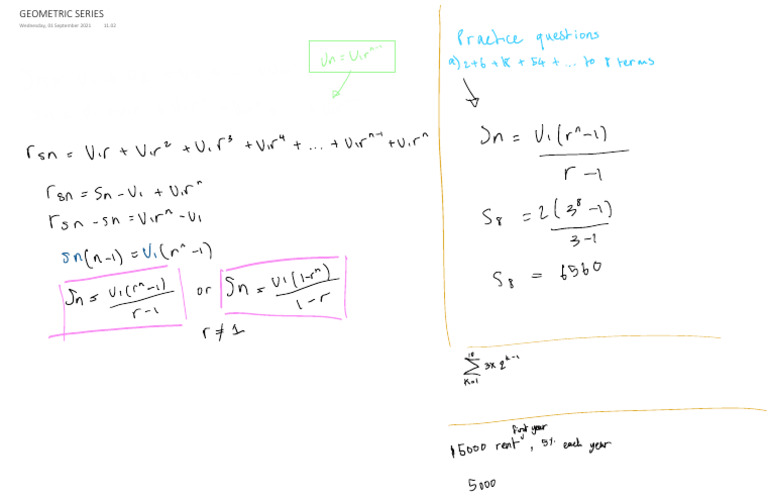 GEOMETRIC SERIES
Wednesday, 01 September 2021 11:32
Un = U₁rⁿ⁻¹
rsn = U₁r + U₁r² + U₁r³ + U₁r⁴ + ... + U₁rⁿ⁻¹ + U₁rⁿ
rsn = Sn - U₁ + U₁rⁿ
rsn - sn = U₁rⁿ - U₁
sn(n-1) = U₁(rⁿ-1)
Sn = U₁(rⁿ-1) / r-1 or Sn = U₁(1-rⁿ) / 1-r
r ≠ 1
Practice questions
a) 2+6+18+54+... to 8 terms
Sn = U₁(rⁿ-1) / r-1
S₈ = 2(3⁸-1) / 3-1
S₈ = 6560
10 ∑ K=1 3x2ᵏ⁻¹
first year
$5000 rent, 5% each year
5000